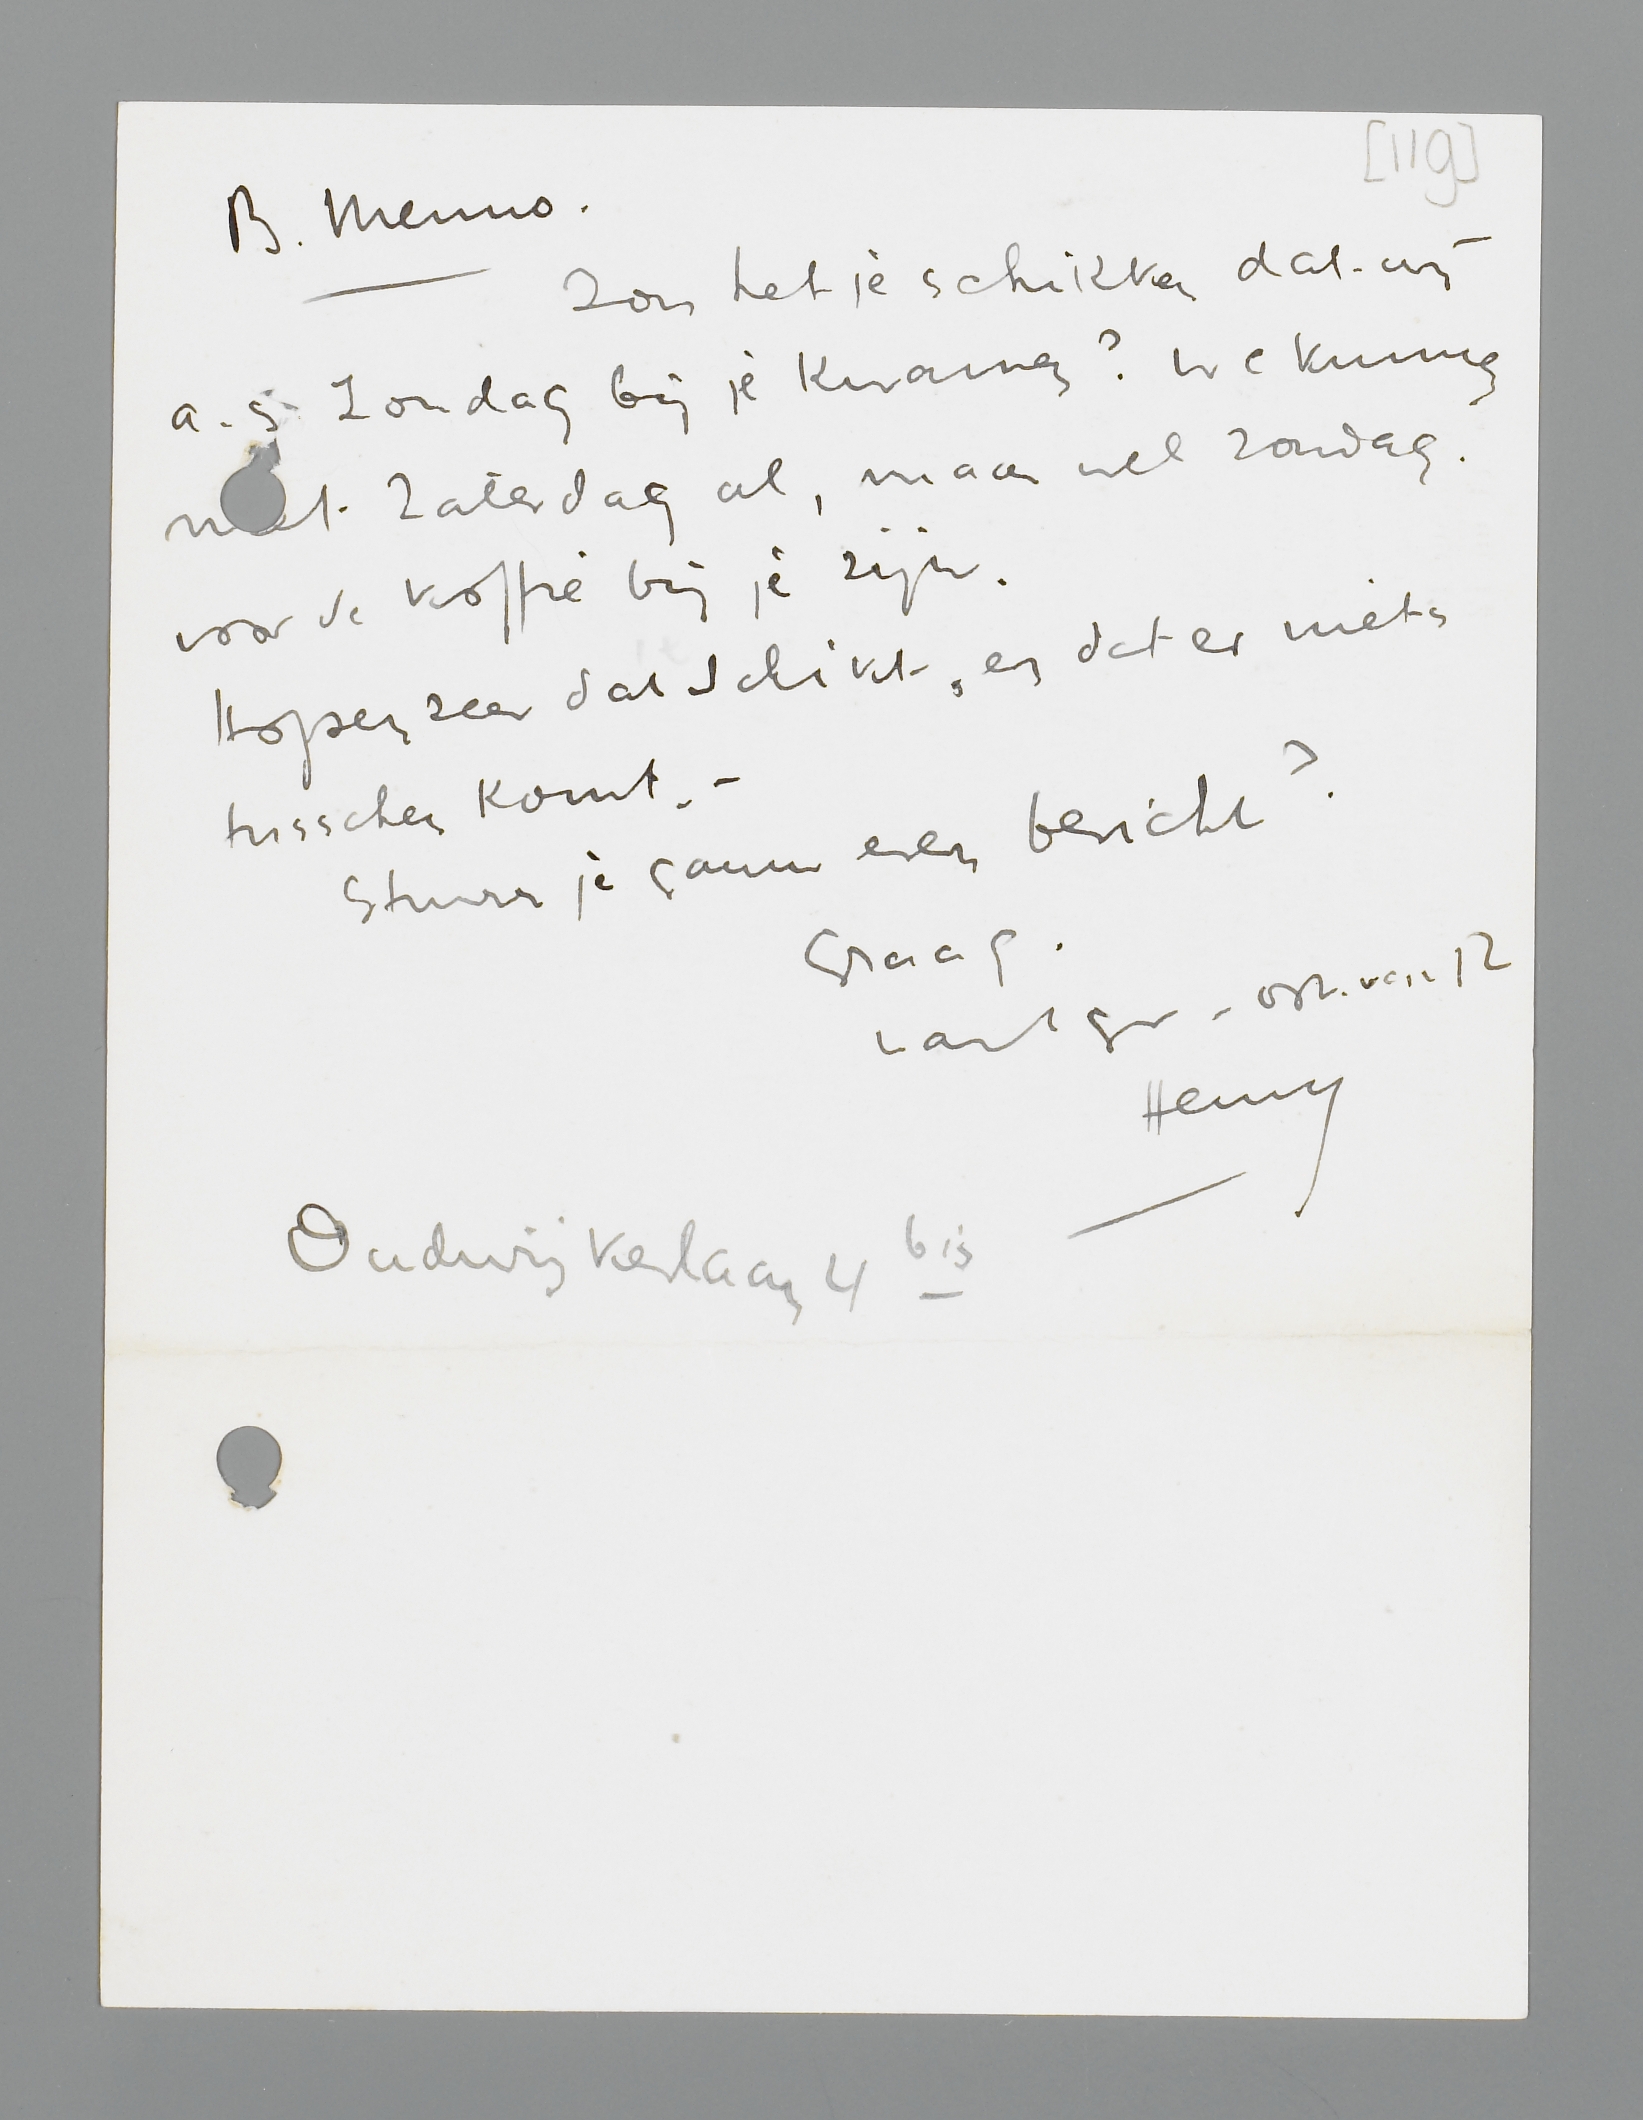 [119]
B. Menno.
Zou het je schikken dat wij
a.s. Zondag bij je kwamen? We kunnen
niet Zaterdag al, maar wel Zondag.
voor de koffie bij je zijn.
Hopen zeer dat schikt, en dat er niets
tusschen komt. -
Stuur je gauw even bericht?
Graag.
hart gr - ook van R
Henny
Oudwijkerlaan 4 bis